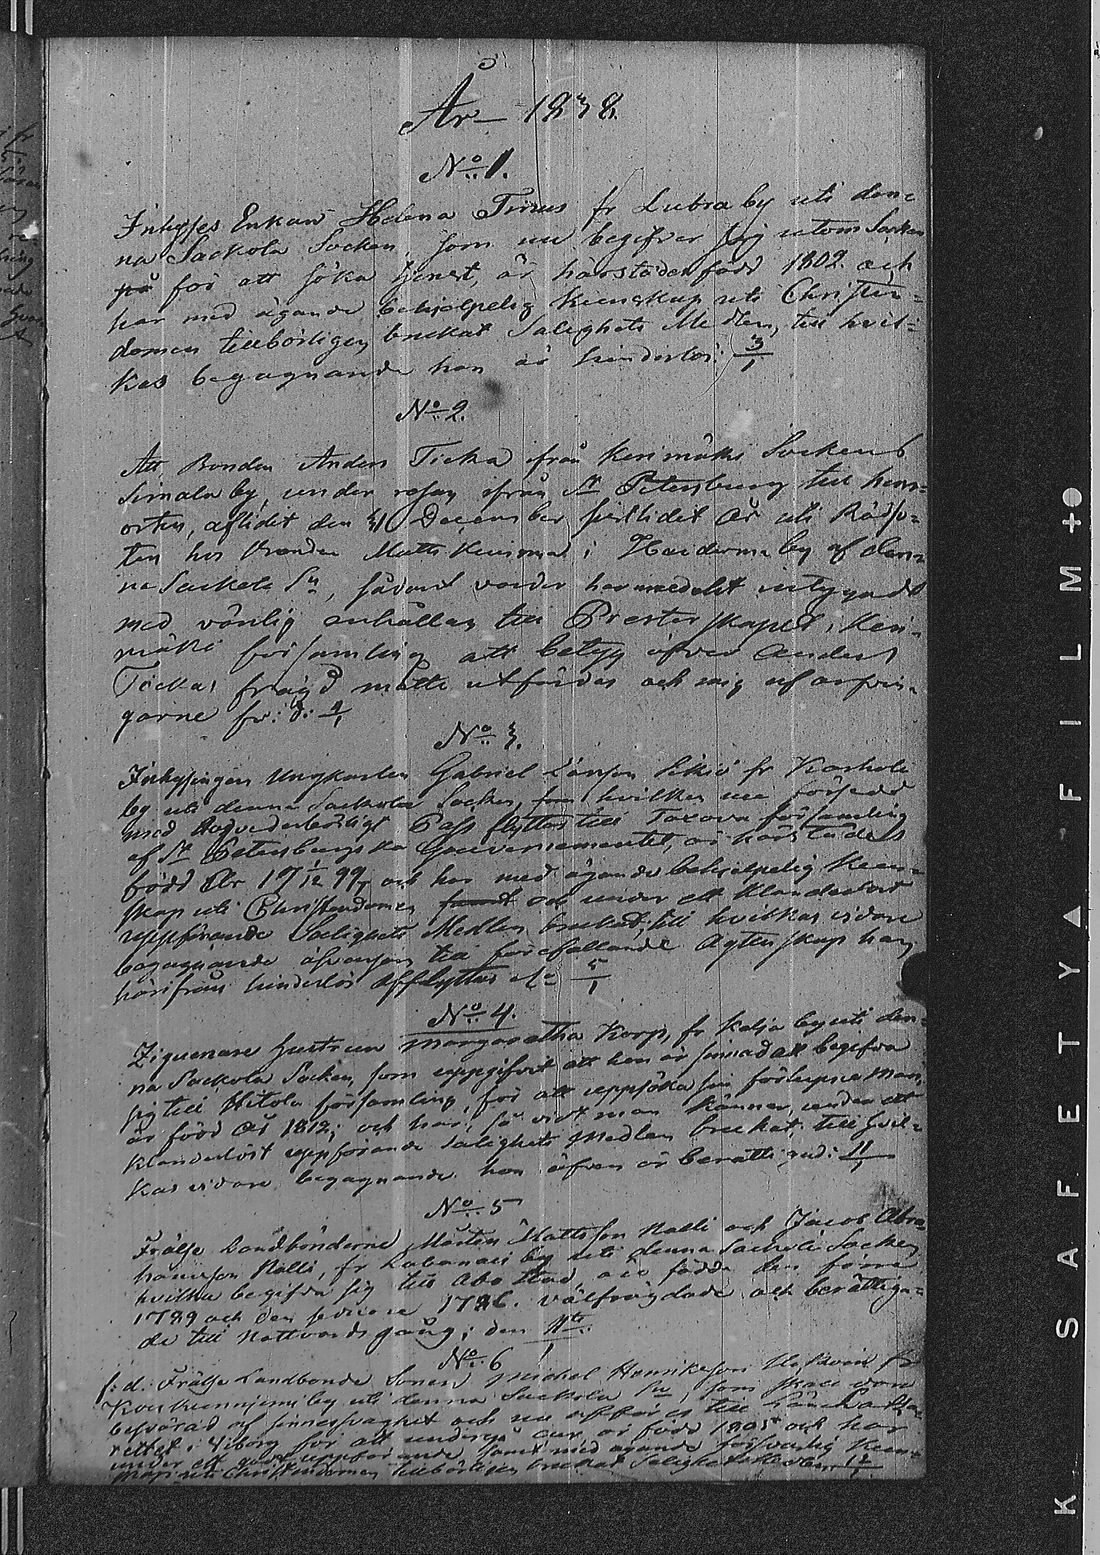 År 1838.
No 1.
Inhyses Enkan Helena Tirus fr Lubra by uti den=
na Sackola Socken, som nu begifver sig utom Socken
på för att söka tjenst, är härstädes född 1802 och
har med ägande behjelpelig kunskap uti Christen=
domen tillbörligen brukat Salighets Medlen, till hvil=
kas begagnande hon är hinderlös: 3/1
No 2.
Att Bonden Anders Ticka från Kerimäki Sockens
Simala by, under resan ifrån St Petersburg till hem=
orten, aflidit den 31 December sistlidet År uti
hos Bonden Matts i by af den=
na Sackola Sn, sådant varder harmedelst intygadt
med vänlig anhållan till Presterskapet i Keri=
mäki församling att betyg öfver Anders
Tickas frägd måtte utfärdas och mig af
garne 9/1
No 3.
Inhysingen Ungkarlen Gabriel fr Karhola
by uti denna Sackola Socken, som hvilken nu försedd
med Högvederbörligt Pass flyttas till Toxova församling
af St Petersburgska Gouvernementet, är härstädes
född År 17 1/12 99, och har med ägande behjelpelig kun=
skap uti Christendomen och under ett klanderlöst
uppförande Salighets Medlen brukat, till hvilkas vidare
begagnande äfvensom till förefallande Agtenskap han
härifrån hinderlös afflyttas 5/1
No 4.
Ziguenare Hustrun Margaretha Korp, fr Kelja by uti den=
na Sackola Socken, som uppgifvit att hon är sinnad att begifva
sig till Hitola församling, för att uppsöka sin förlupne Man,
är född År 1812; och har, så vidt man känner, under ett
klanderlöst uppförande salighets medlen brukat, till hvil=
kas vidare begagnande hon äfven är berättigad: 11/1
No 5
Frälse Landbönderne Mårten Mattsson Nalli och Jacob Abra
hamsson Nalli, fr by uti denna Sackola Socken,
hvilka begifva sig till Åbo Stad, äro födde den förre
1789 och den sednare 1786. välfrägdade och berättiga=
de till Nattvards gång; den 11te
No 6
f: d: Frälse Landbonde Sonen Michel Henriksson fr
by uti denna Sackola Sn, som skall vara
besvärad af sinnessvaghet och nu afföres till
rettet i Viborg för att undergå cur, är född 1805 och har
under ett godt uppförande samt med ägande försvarlig kun=
skap uti Christendomen tillbörligen brukat Salighetsmedlen 12/1
KSAFETY▲-FILM+●